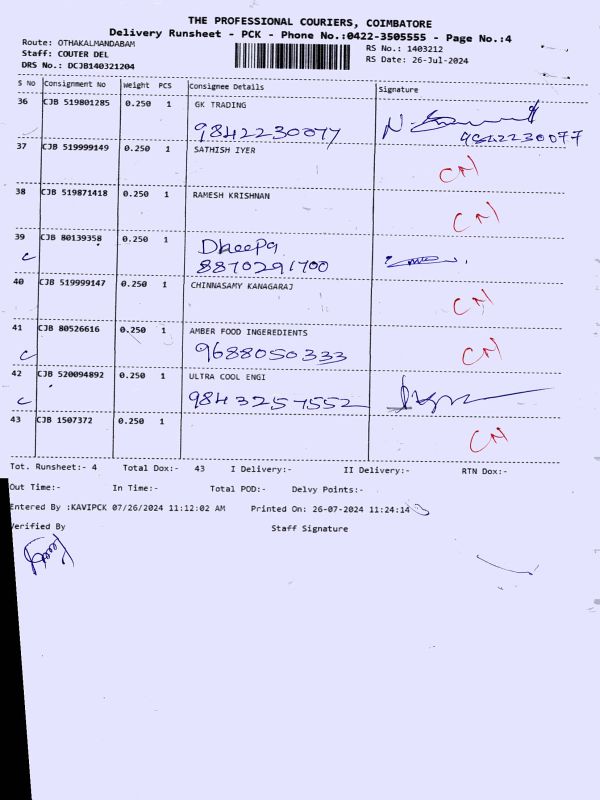 THE PROFESSIONAL COURIERS, COIMBATORE
Delivery Runsheet - PCK - Phone No.:0422-3505555 - Page No.:4
Route: OTHAKALMANDABAM
RS No.: 1403212
Staff: COUTER DEL
RS Date: 26-Jul-2024
DRS No.: DCJB140321204
S No Consignment No Weight PCS Consignee Details Signature
36 CJB 519801285 0.250 1 GK TRADING
9842230077 9842230077
37 CJB 519999149 0.250 1 SATHISH IYER CN
38 CJB 519871418 0.250 1 RAMESH KRISHNAN CN
39 CJB 80139358 0.250 1 Dheepa
C 8870291700
40 CJB 519999147 0.250 1 CHINNASAMY KANAGARAJ CN
41 CJB 80526616 0.250 1 AMBER FOOD INGEREDIENTS
C 9688050333 CN
42 CJB 520094892 0.250 1 ULTRA COOL ENGI
C 9843257552
43 CJB 1507372 0.250 1 CN
Tot. Runsheet:- 4 Total Dox:- 43 I Delivery:- II Delivery:- RTN Dox:-
Out Time:- In Time:- Total POD:- Delvy Points:-
Entered By :KAVIPCK 07/26/2024 11:12:02 AM Printed On: 26-07-2024 11:24:14
Verified By Staff Signature